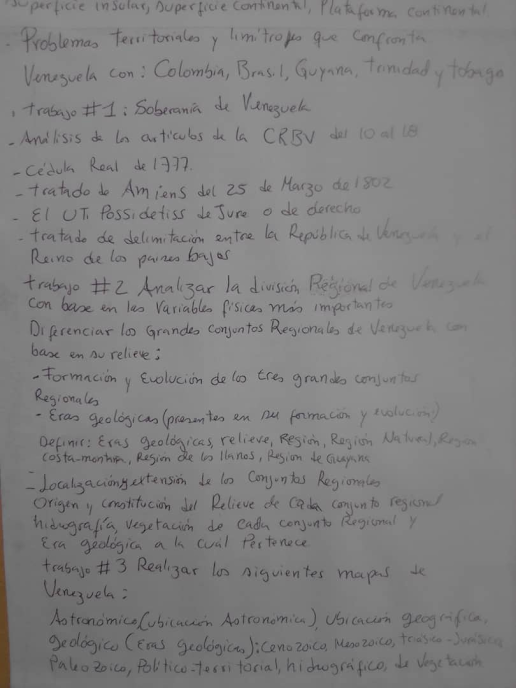 Superficie insular, Superficie Continental, Plataforma Continental
. Problemas territoriales y limitrofes que confronta
Venezuela con: Colombia, Brasil, Guyana, Trinidad y tobago
. trabajo #1: Soberania de Venezuela
- Análisis de los articulos de la CRBV del 10 al 18
- Cédula Real de 1777.
- tratado de Amiens del 25 de Marzo de 1802
- El UTi Possidetiss de Jure o de derecho
- tratado de delimitación entre la República de Venezuela y el
Reino de los paises bajos
trabajo #2 Analizar la división Regional de Venezuela
con base en las Variables físicas más importantes
Diferenciar los Grandes conjuntos Regionales de Venezuela con
base en su relieve:
- Formación y Evolución de los tres grandes conjuntos
Regionales
- Eras geológicas (presentes en su formación y evolución)
Definir: Eras geológicas, relieve, Región, Región Natural, Región
costa-montaña, Región de los llanos, Region de Guayana
- Localización y extensión de los Conjuntos Regionales
Origen y constitución del Relieve de Cada conjunto regional
hidrografía, vegetación de cada conjunto Regional y
Era geológica a la cual Pertenece
trabajo #3 Realizar los siguientes mapas de
Venezuela:
Astronómico (ubicación Astronómica), ubicación geográfica,
geológico (Eras geológicas): Cenozoico, Mesozoico, triásico-Jurásico
Paleozoico, Político-territorial, hidrográfico, de vegetación